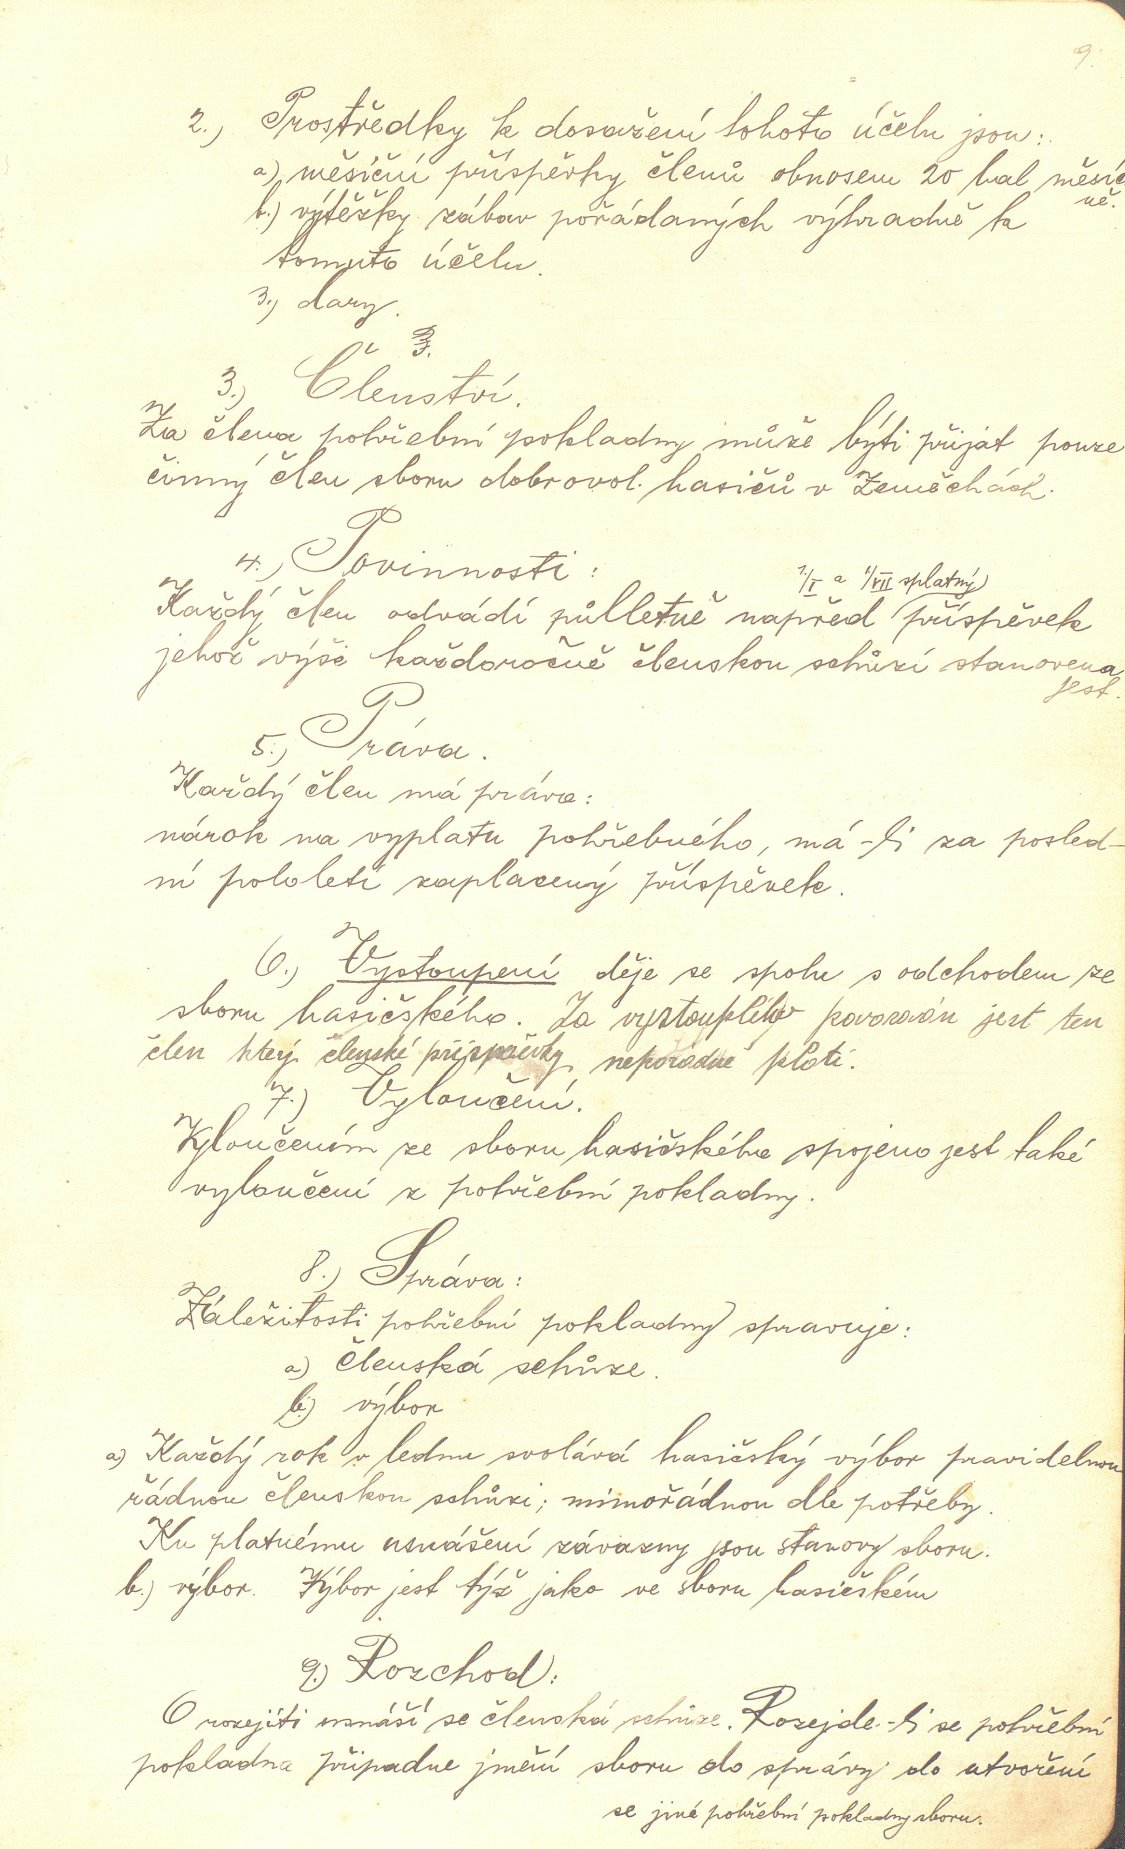 9.
2.) Prostředky k dosažení tohoto účelu jsou:
a) měsíční příspěvky členů obnosem 20 hal měsíč
ně.
b.) výtěžky zábav pořádaných výhradně k
tomuto účelu.
3.) dary.
3.) Členství.
Za člena pohřební pokladny může býti přijat pouze
činný člen sboru dobrovol. hasičů v Zeměchách.
4.) Povinnosti:
1./I a 1/VII splatný
Každý člen odvádí půlletně napřed příspěvek
jehož výši každoročně členskou schůzí stanovena
jest.
5.) Práva.
Každý člen má práva:
nárok na vyplatu pohřebného, má-li za posled-
ní pololetí zaplacený příspěvek.
6.) Vystoupení děje se spolu s odchodem ze
sboru hasičského. Za vystouplého považován jest ten
člen který členské příspěvky neporadně platí.
7.) Vyloučení.
Vyloučením ze sboru hasičského spojeno jest také
vyloučení z pohřební pokladny.
8.) Správa:
Záležitosti pohřební pokladny spravuje:
a) členská schůze.
b.) výbor
a) Každý rok v lednu svolává hasičský výbor pravidelnou
řádnou členskou schůzi; mimořádnou dle potřeby.
Ku platnému usnášení závazny jsou stanovy sboru.
b.) výbor. Výbor jest týž jako ve sboru hasičském
9.) Rozchod:
O rozejíti usnáší se členská schůze. Rozejde-li se pohřební
pokladna připadne jmění sboru do správy do utvoření
se jiné pohřební pokladny sboru.